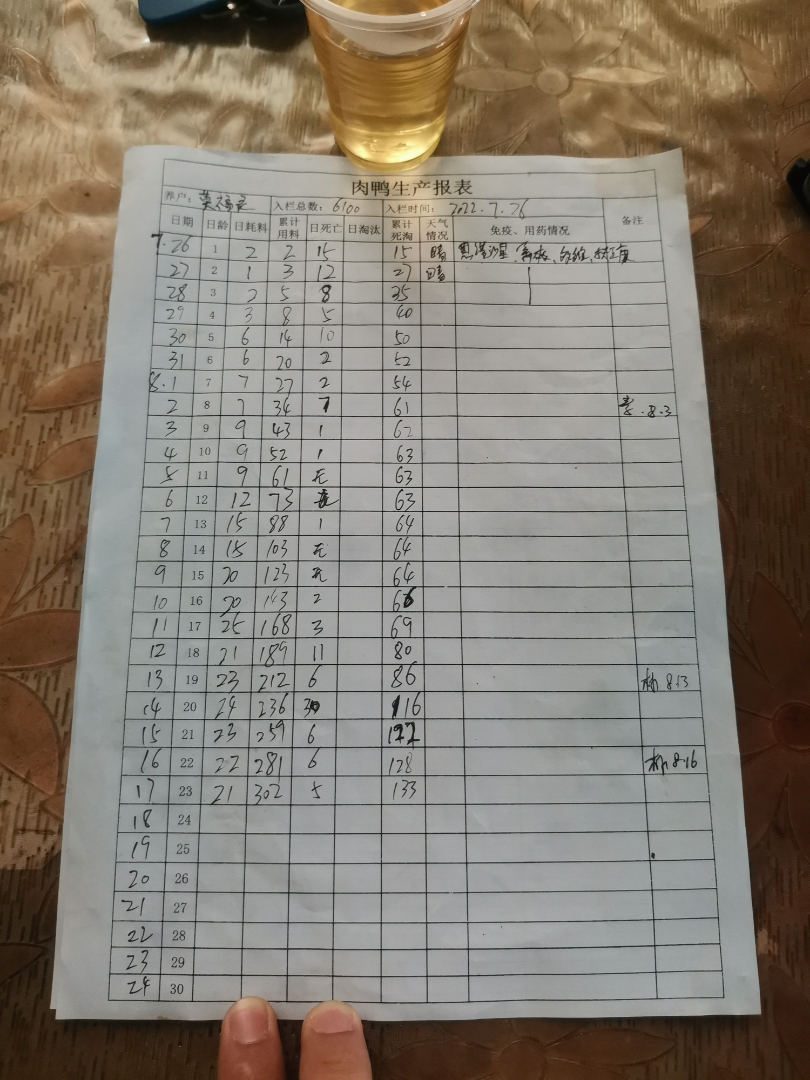 肉鸭生产报表
养户： 入栏总数：6100 入栏时间：2022.7.26
日期 日龄 日耗料 累计用料 日死亡 日淘汰 累计死淘 天气情况 免疫、用药情况 备注
7.26 1 2 2 15 15 晴 恩诺沙星、
27 2 1 3 12 27 晴
28 3 2 5 8 35
29 4 3 8 5 40
30 5 6 14 10 50
31 6 6 20 2 52
8.1 7 7 27 2 54
2 8 7 34 7 61 8.3
3 9 9 43 1 62
4 10 9 52 1 63
5 11 9 61 无 63
6 12 12 73 无 63
7 13 15 88 1 64
8 14 15 103 无 64
9 15 20 123 无 64
10 16 20 143 2 66
11 17 25 168 3 69
12 18 21 189 11 80
13 19 23 212 6 86 8.13
14 20 24 236 30 116
15 21 23 259 6 122
16 22 22 281 6 128 8.16
17 23 21 302 5 133
18 24
19 25
20 26
21 27
22 28
23 29
24 30